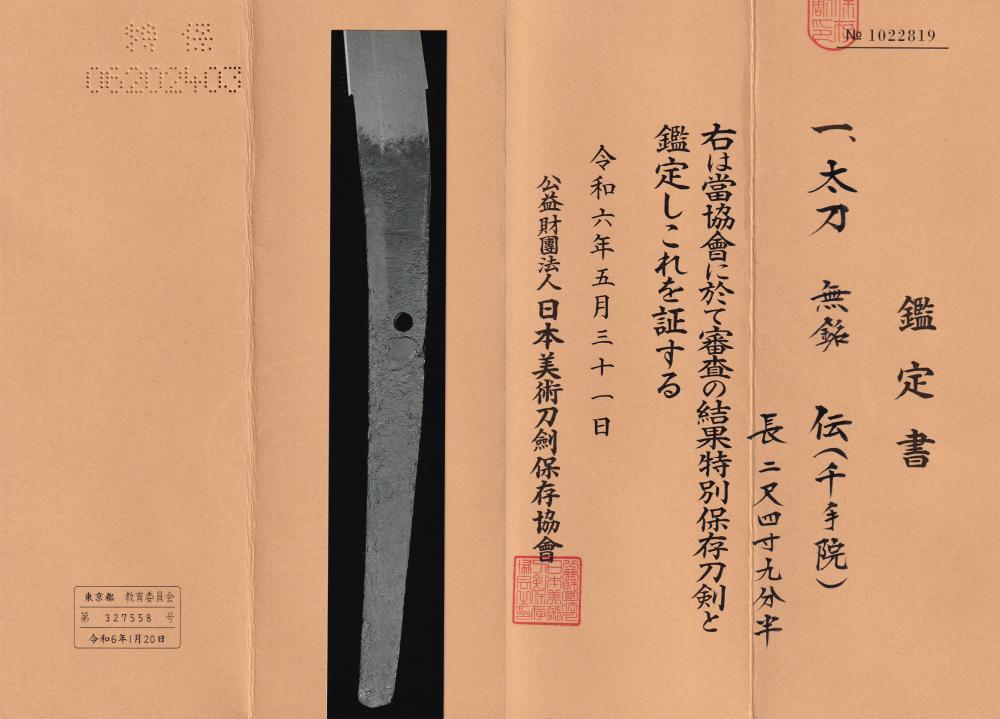 № 1022819
鑑定書
一、太刀 無銘 伝(千手院)
長二尺四寸九分半
右は當協會に於て審査の結果特別保存刀剣と
鑑定しこれを証する
令和六年五月三十一日
公益財團法人 日本美術刀劍保存協會
06202403
東京都 教育委員会
第 327558 号
令和6年1月20日